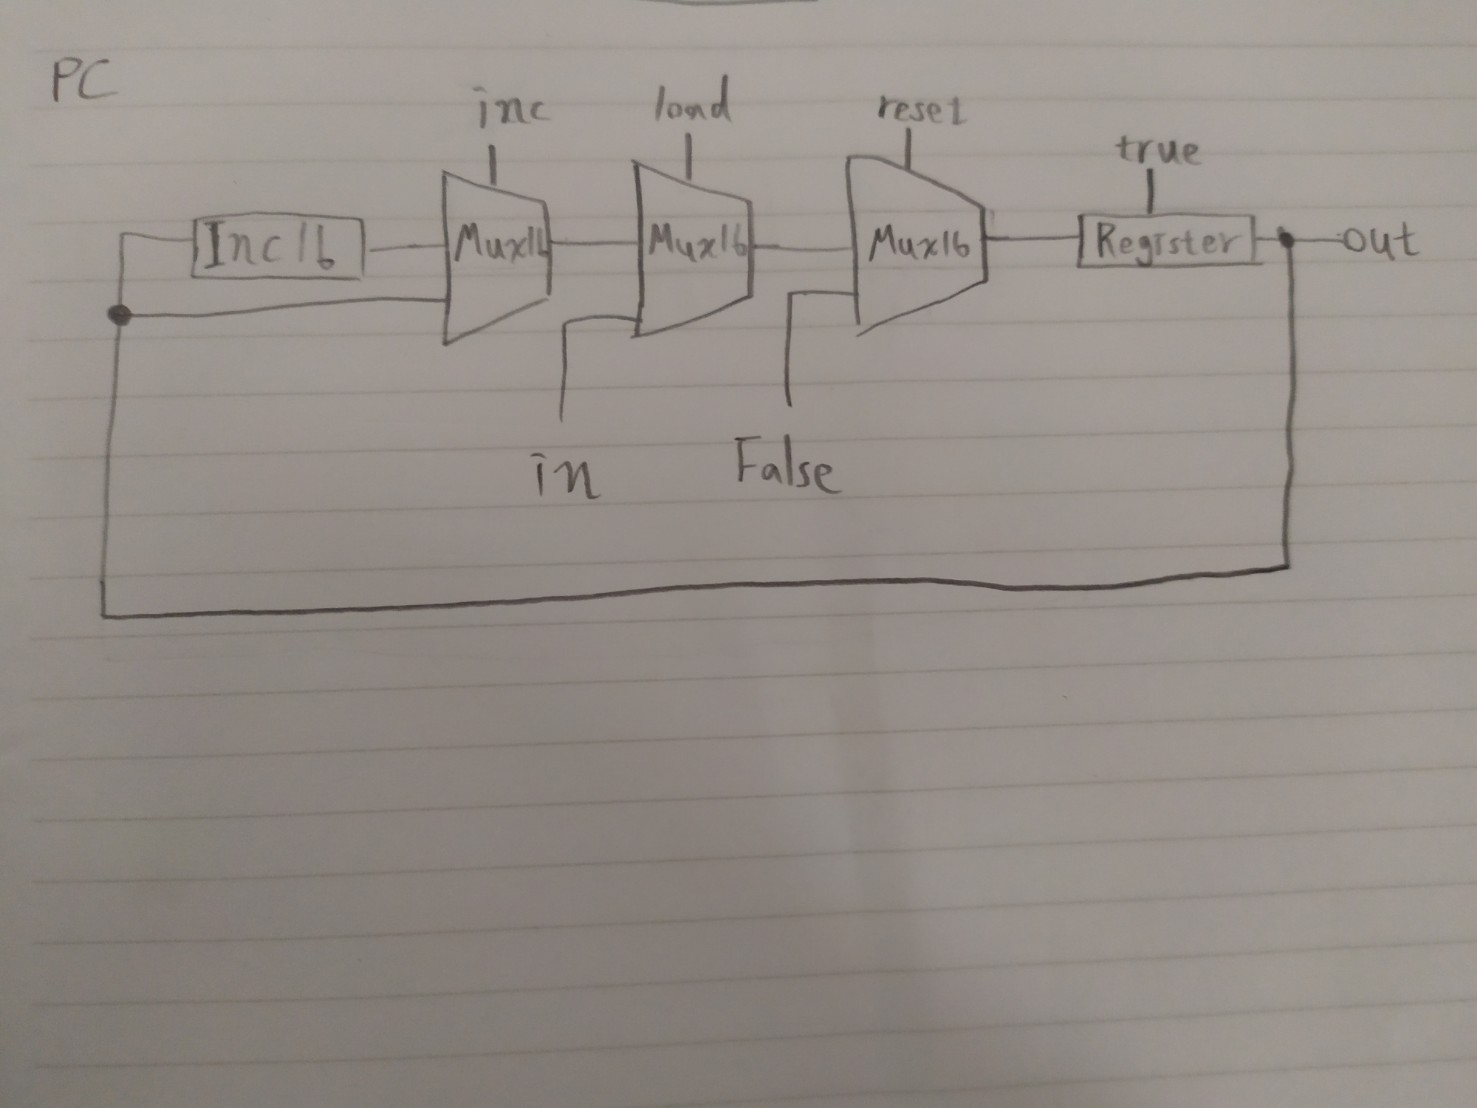 PC
inc
load
reset
true
Inc16
Mux16
Mux16
Mux16
Register
out
in
False